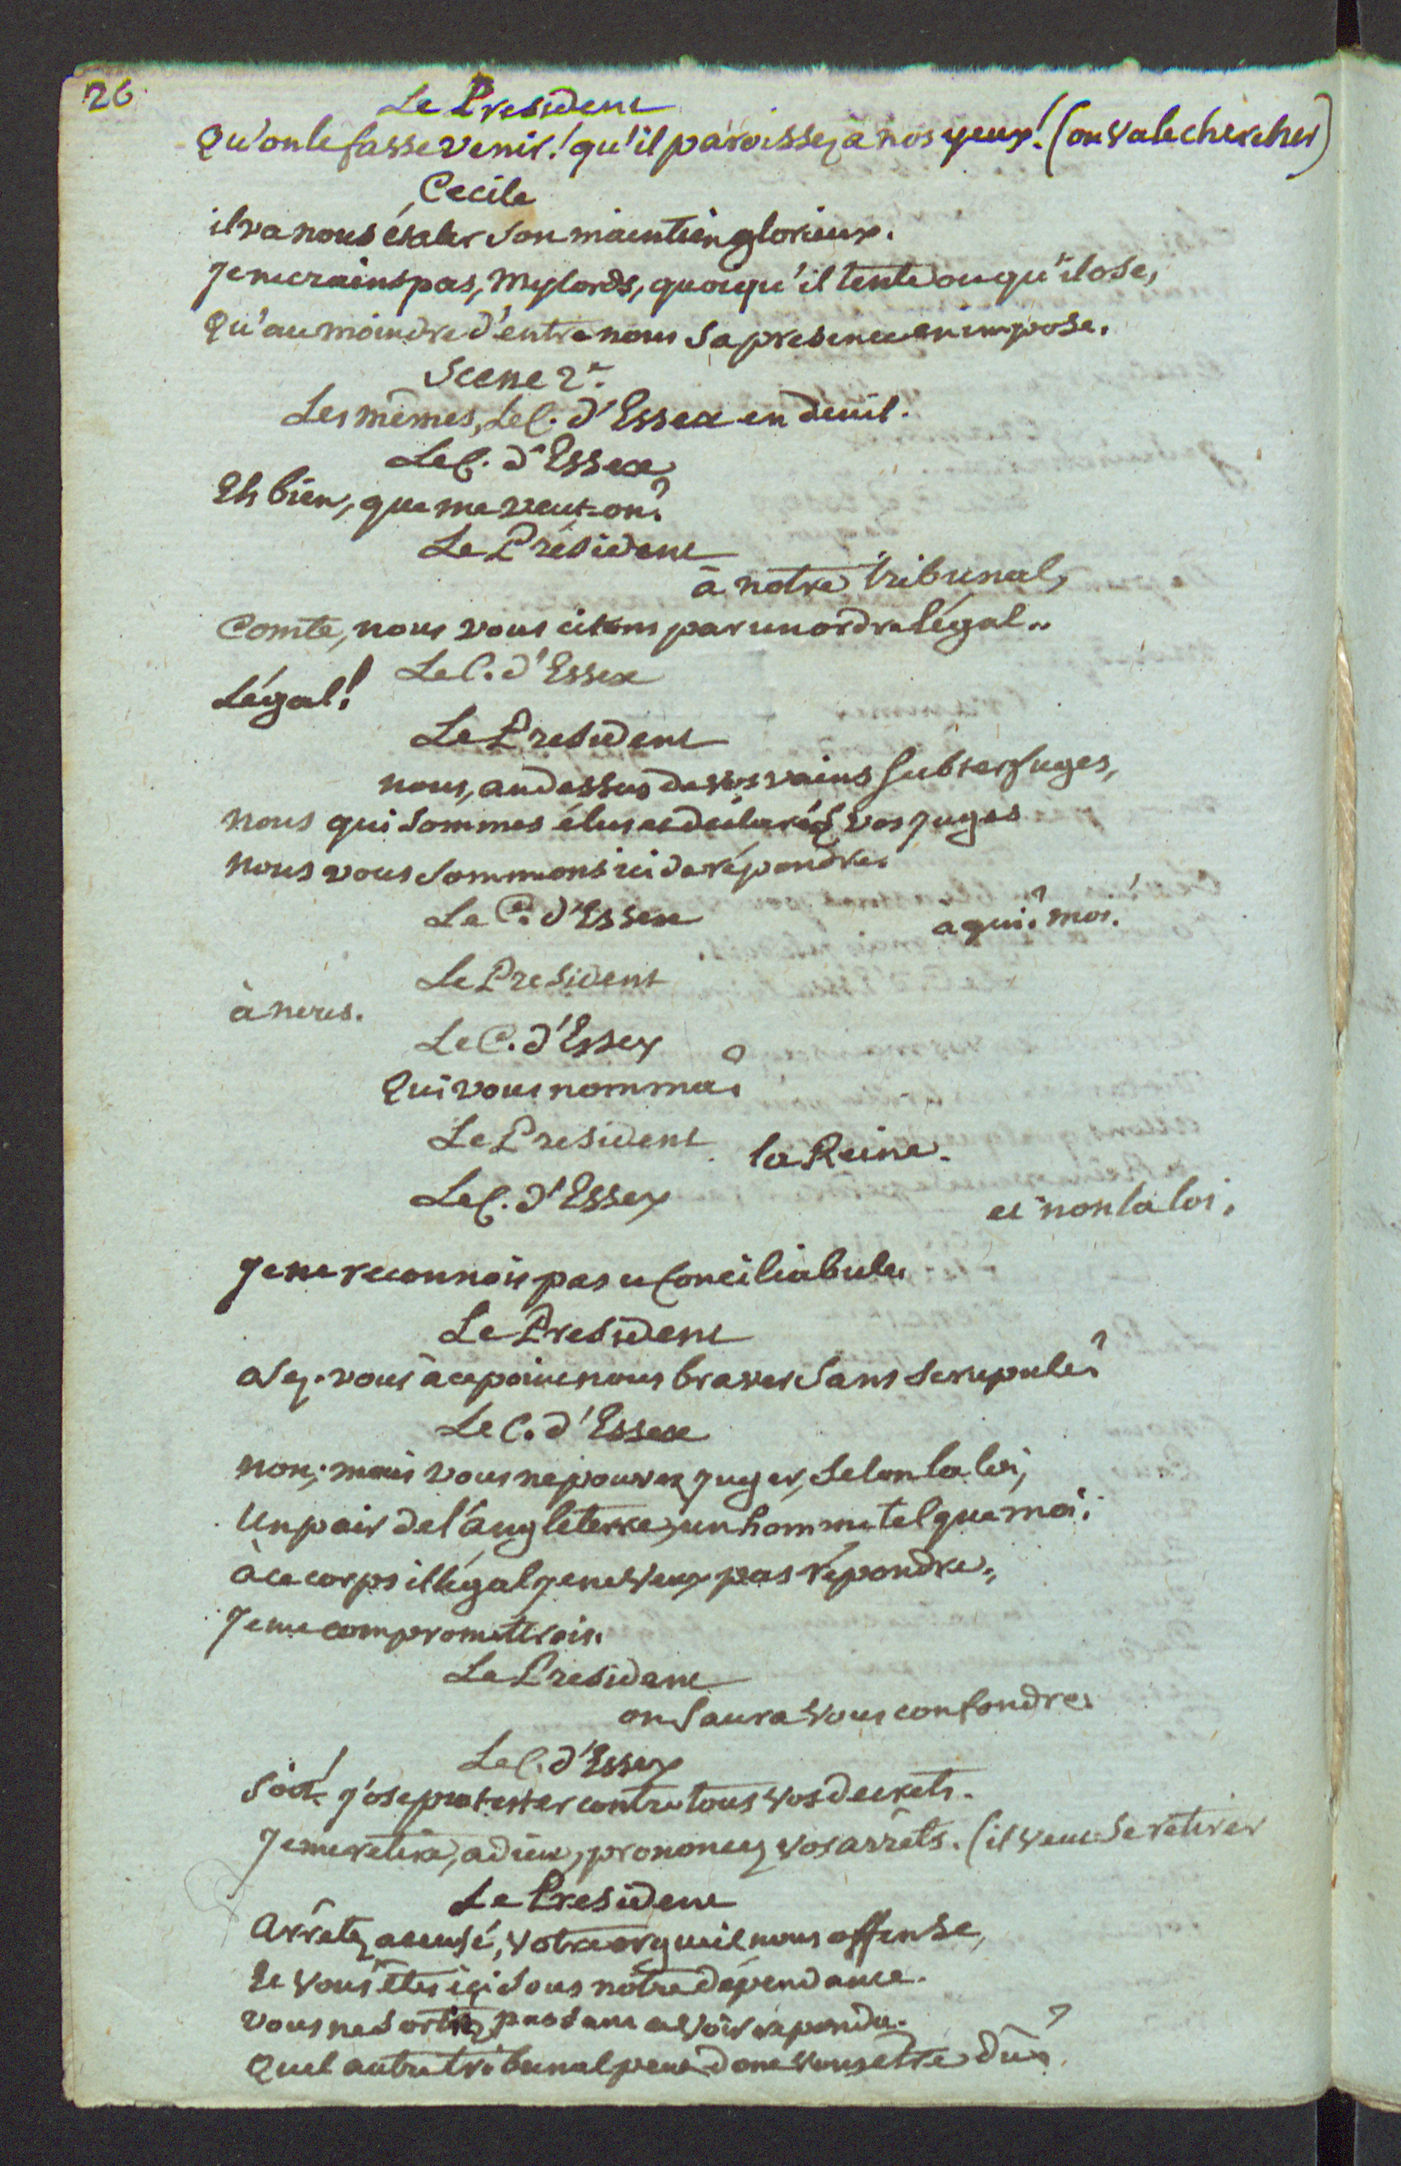 26
Le President
Qu'on le fasse venir! qu'il paroisse à nos yeux! (on va le chercher)
Cecile
il va nous étaler son maintien glorieux.
Je ne crains pas, Mylords, quoiqu'il tente ou qu'il ose,
Qu'au moindre d'entre nous sa presence en impose.
Scene 2e.
Les mêmes, Le C. d'Essex en deuil.
Le C. d'Essex
Eh bien, que me veut-on?
Le Président
à notre tribunal,
Comte, nous vous citons par un ordre légal..
Le C. d'Essex
Légal!
Le President
nous, au dessus de vos vains subterfuges,
nous qui sommes élus et déclarés vos juges
nous vous sommons ici de répondre.
Le C. d'Essex
à qui? moi!
Le President
à nous.
Le C. d'Essex
Qui vous nomma?
Le President
la Reine.
Le C. d'Essex
et non la loi.
Je ne reconnois pas ce Conciliabule.
Le President
osez-vous à ce point nous braver sans scrupule?
Le C. d'Essex
non; mais vous ne pouvez juger, selon la loi,
Un pair de l'Angleterre, un homme tel que moi.
à ce corps illégal je ne veux pas répondre,
Je me compromettrois.
Le President
on saura vous confondre.
Le C. d'Essex
Soit! j'ose protester contre tous vos decrets.
Je me retire, adieu, prononcez vos arrêts. (il veut se retirer
Le President
Arrêtez accusé, votre orgueil nous offense,
Et vous êtes ici sous notre dépendance.
vous ne sortirez pas sans avoir répondu.
Quel autre tribunal peut donc vous être dû?